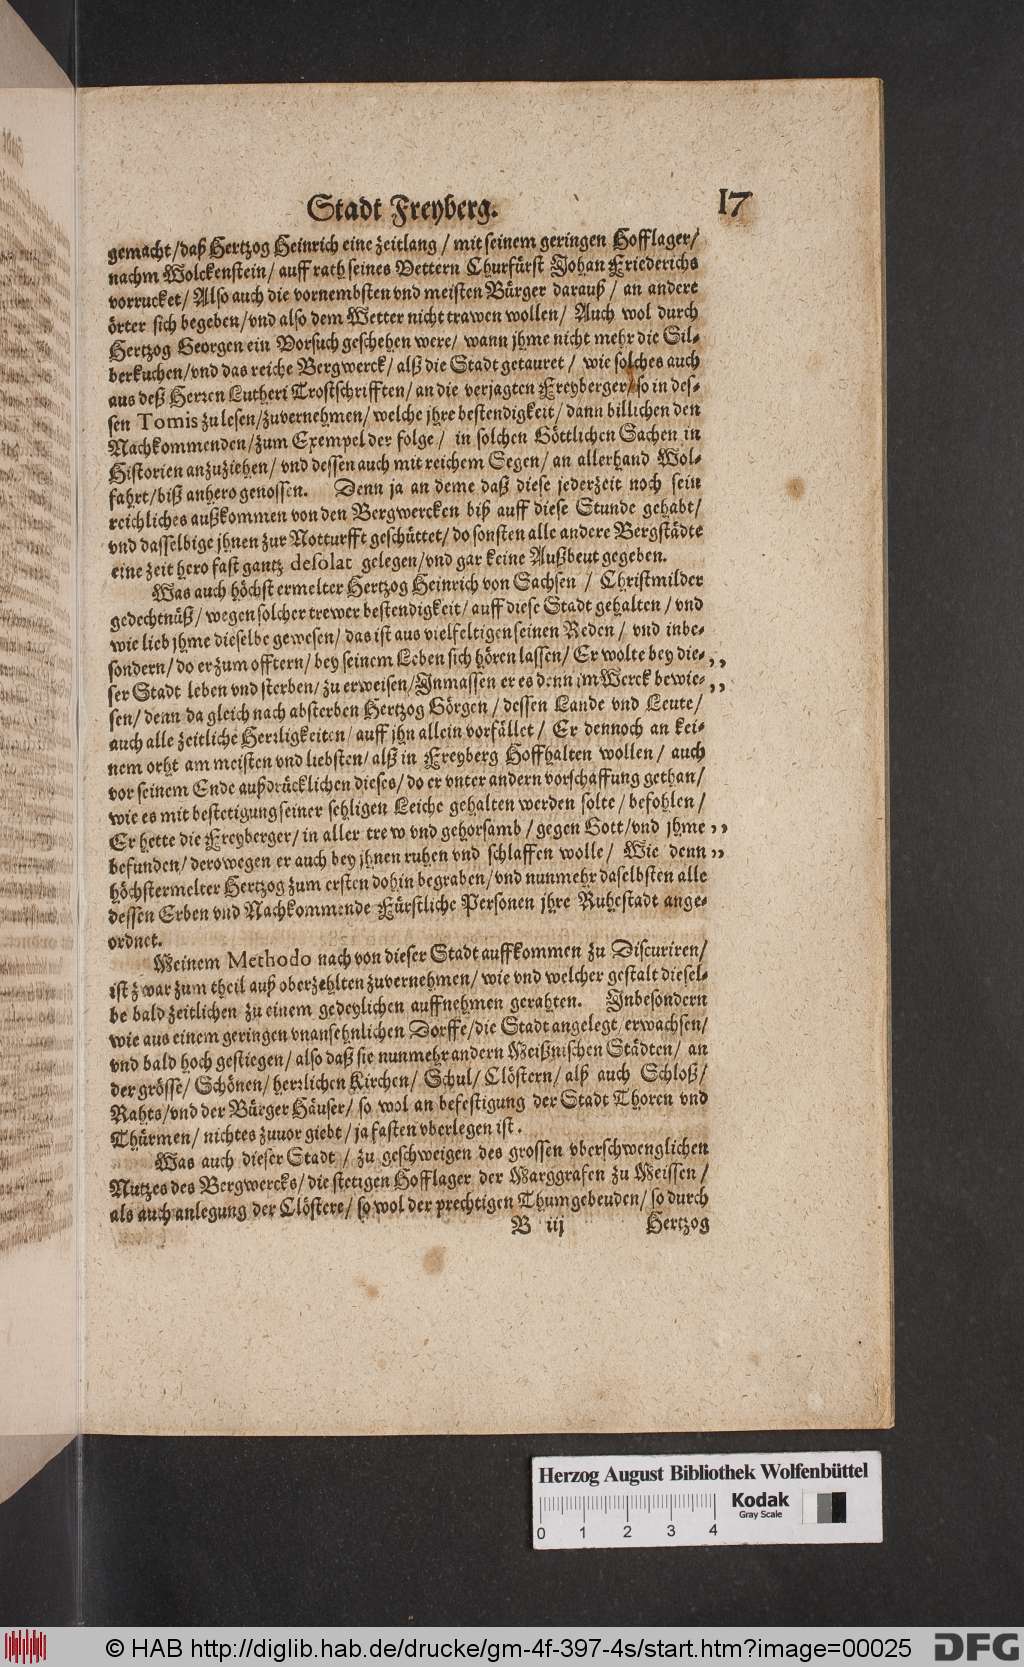 Stadt Freyberg. 17
gemacht/daß Hertzog Heinrich eine zeitlang / mit seinem geringen Hofflager/
nachm Wolckenstein/ auff rath seines Vettern Churfürst Johan Friederichs
vorrucket/ Also auch die vornembsten vnd meisten Bürger darauß / an andere
örter sich begeben/vnd also dem Wetter nicht trawen wollen/ Auch wol durch
Hertzog Georgen ein Vorsuch geschehen were/ wann jhme nicht mehr die Sil-
berkuchen/vnd das reiche Bergwerck/ alß die Stadt getauret / wie solches auch
aus deß Herren Lutheri Trostschrifften/ an die verjagten Freyberger/ so in des-
sen Tomis zu lesen/zuvernehmen/ welche jhre bestendigkeit/ dann billichen den
Nachkommenden/zum Exempel der folge/ in solchen Göttlichen Sachen in
Historien anzuziehen/ vnd dessen auch mit reichem Segen/ an allerhand Wol-
fahrt/biß anhero genossen. Denn ja an deme daß diese jederzeit noch sein
reichliches außkommen von den Bergwercken biß auff diese Stunde gehabt/
vnd dasselbige jhnen zur Notturfft geschüttet/ do sonsten alle andere Bergstädte
eine zeit hero fast gantz desolat gelegen/vnd gar keine Außbeut gegeben.
Was auch höchst ermelter Hertzog Heinrich von Sachsen / Christmilder
gedechtnüß/ wegen solcher trewer bestendigkeit/ auff diese Stadt gehalten / vnd
wie lieb jhme dieselbe gewesen/ das ist aus vielfeltigen seinen Reden / vnd inbe-
sondern/ do er zum offtern/ bey seinem Leben sich hören lassen/ Er wolte bey die- ,,
ser Stadt leben vnd sterben/ zu erweisen/Inmassen er es denn im Werck bewie- ,,
sen/ denn da gleich nach absterben Hertzog Görgen / dessen Lande vnd Leute/
auch alle zeitliche Herrligkeiten/ auff jhn allein vorfället/ Er dennoch an kei-
nem orht am meisten vnd liebsten/ alß in Freyberg Hoffhalten wollen / auch
vor seinem Ende außdrücklichen dieses/ do er vnter andern vorschaffung gethan/
wie es mit bestetigung seiner sehligen Leiche gehalten werden solte / befohlen /
Er hette die Freyberger/ in aller trew vnd gehorsamb / gegen Gott/vnd jhme ,,
befunden/ derowegen er auch bey jhnen ruhen vnd schlaffen wolle/ Wie denn ,,
höchstermelter Hertzog zum ersten dohin begraben/ vnd nunmehr daselbsten alle
dessen Erben vnd Nachkommende Fürstliche Personen jhre Ruhestadt ange-
ordnet.
Meinem Methodo nach von dieser Stadt auffkommen zu Discuriren/
ist zwar zum theil auß oberzehlten zuvernehmen/ wie vnd welcher gestalt diesel-
be bald zeitlichen zu einem gedeylichen auffnehmen gerahten. Inbesondern
wie aus einem geringen vnansehnlichen Dorffe/die Stadt angelegt/ erwachsen/
vnd bald hoch gestiegen/ also daß sie nunmehr andern Meißnischen Städten/ an
der grösse/ Schönen/ herrlichen Kirchen/ Schul/ Clöstern/ alß auch Schloß/
Rahts/vnd der Bürger Häuser/ so wol an befestigung der Stadt Thoren vnd
Thürmen/ nichtes zuuor giebt/ ja fasten vberlegen ist.
Was auch dieser Stadt / zu geschweigen des grossen vberschwenglichen
Nutzes des Bergwercks/ die stetigen Hofflager der Marggrafen zu Meissen /
als auch anlegung der Clöstere/ so wol der prechtigen Thumgebeuden/ so durch
B iij Hertzog
Herzog August Bibliothek Wolfenbüttel
Kodak
Gray Scale
0 1 2 3 4
© HAB http://diglib.hab.de/drucke/gm-4f-397-4s/start.htm?image=00025
DFG